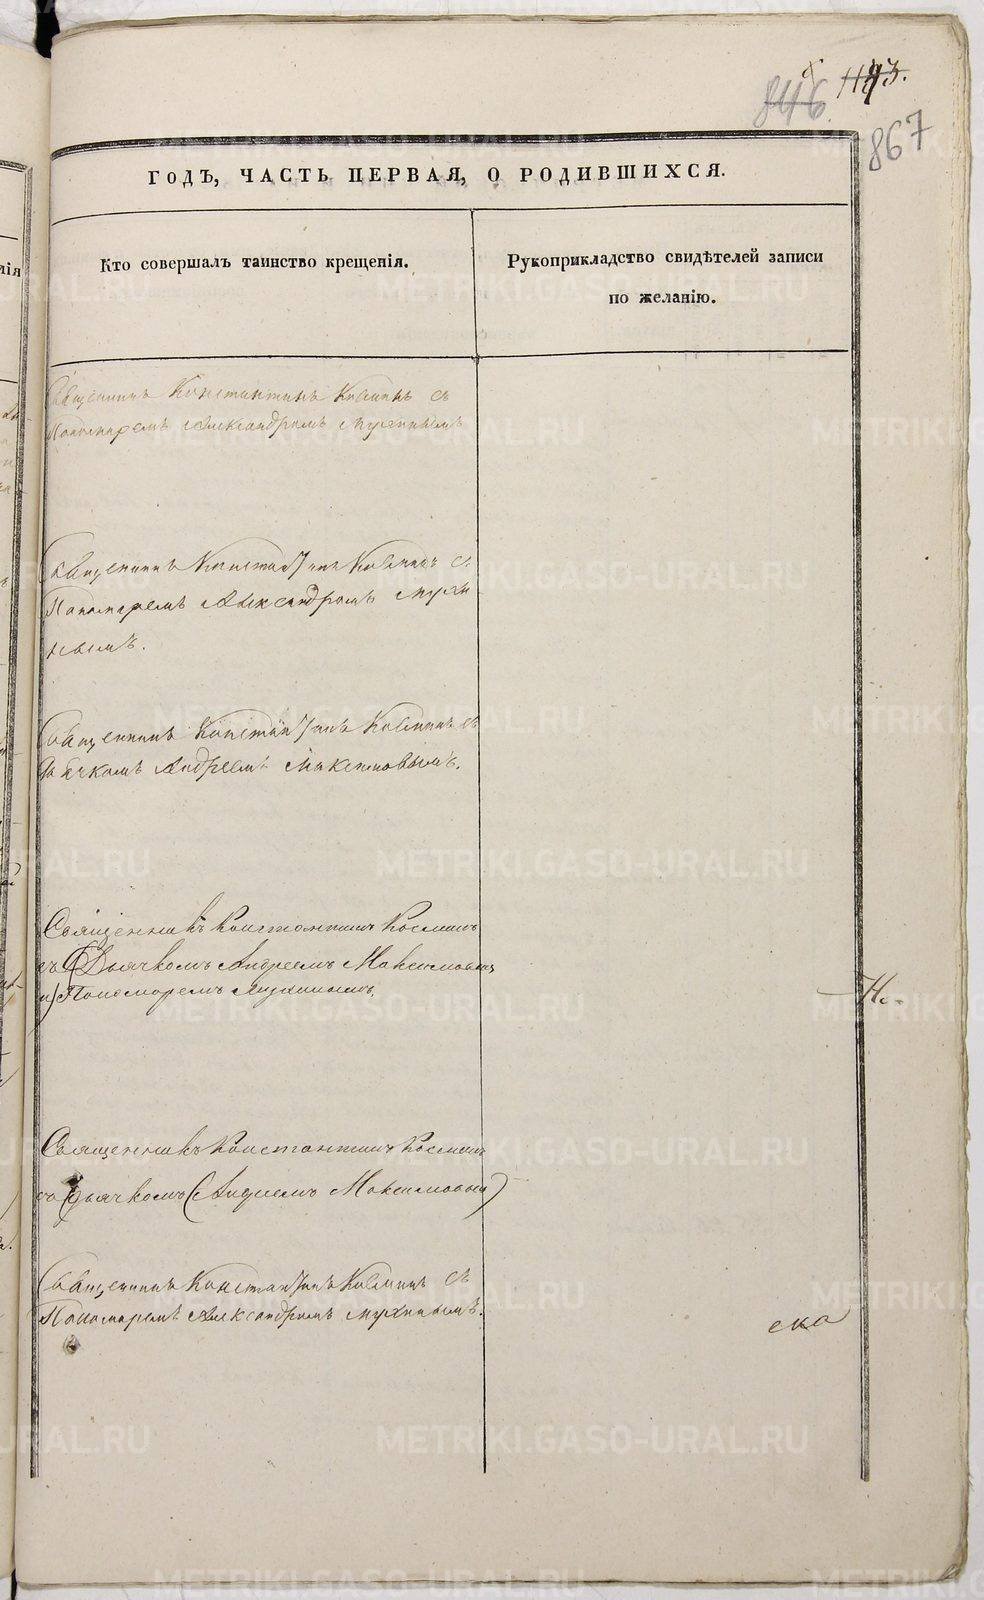 1193.
846.
867
ГОДЪ, ЧАСТЬ ПЕРВАЯ, О РОДИВШИХСЯ.
Кто совершалъ таинство крещенія.
Рукоприкладство свидѣтелей записи
по желанію.
Священникъ Константинъ Косминъ съ
Пономаремъ Александромъ Мухинымъ
Священникъ Константинъ Косминъ съ
Пономаремъ Александромъ Мухи
нымъ.
Священникъ Константинъ Косминъ съ
Дьячкомъ Андреемъ Максимовымъ.
Священникъ Константинъ Косминъ
съ Дьячкомъ Андреемъ Максимовым
и Пономоремъ Мухинымъ.
Но-
Священникъ Константинъ Косминъ
со дьячкомъ Андреемъ Максимовым
Священникъ Константинъ Косминъ съ
Пономаремъ Александромъ Мухинымъ.
ска
METRIKI.GASO-URAL.RU